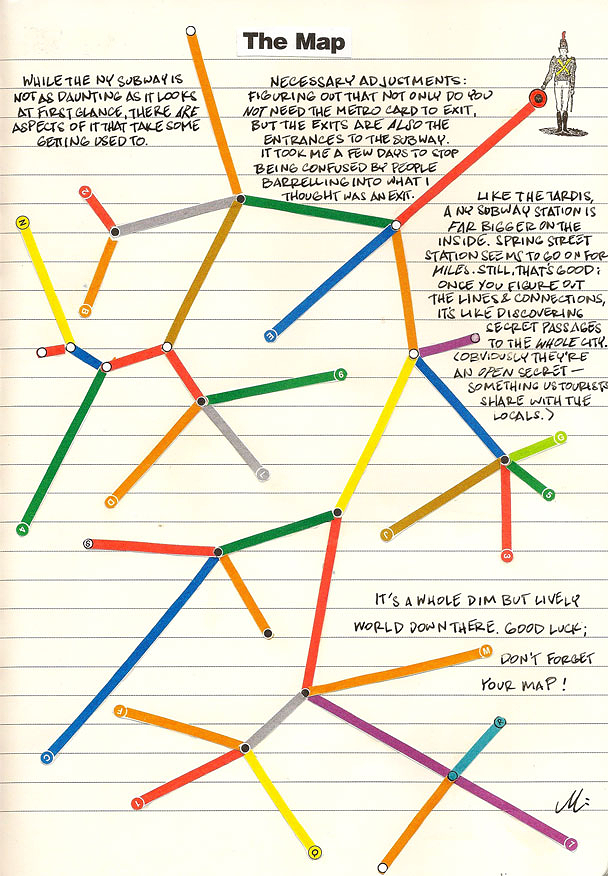 The Map
WHILE THE NY SUBWAY IS
NOT AS DAUNTING AS IT LOOKS
AT FIRST GLANCE, THERE ARE
ASPECTS OF IT THAT TAKE SOME
GETTING USED TO.
NECESSARY ADJUSTMENTS:
FIGURING OUT THAT NOT ONLY DO YOU
NOT NEED THE METRO CARD TO EXIT,
BUT THE EXITS ARE ALSO THE
ENTRANCES TO THE SUBWAY.
IT TOOK ME A FEW DAYS TO STOP
BEING CONFUSED BY PEOPLE
BARRELLING INTO WHAT I
THOUGHT WAS AN EXIT.
LIKE THE TARDIS,
A NY SUBWAY STATION IS
FAR BIGGER ON THE
INSIDE. SPRING STREET
STATION SEEMS TO GO ON FOR
MILES. STILL, THAT'S GOOD:
ONCE YOU FIGURE OUT
THE LINES & CONNECTIONS,
IT'S LIKE DISCOVERING
SECRET PASSAGES
TO THE WHOLE CITY.
(OBVIOUSLY THEY'RE
AN OPEN SECRET —
SOMETHING US TOURISTS
SHARE WITH THE
LOCALS.)
2
N
B
E
6
D
L
4
G
5
J
3
9
C
IT'S A WHOLE DIM BUT LIVELY
WORLD DOWN THERE. GOOD LUCK;
DON'T FORGET
YOUR MAP!
M
F
1
Q
7